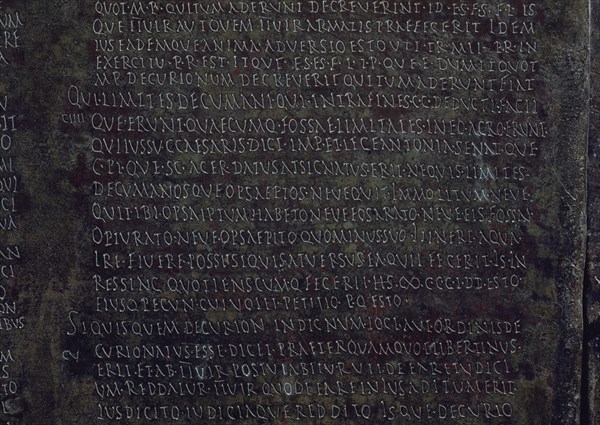 QUOT·M·P·QUITUM ADERUNT DECREVERINT ID·E·S·F·S·F·L·IS
QUE IIVIR AUT QUEM IIVIR ARMATIS PRAEFECERIT IDEM
IUS EADEMQUE ANIMADVERSIO ESTO UTI TR·MIL·P·R·IN
EXERCITU P·R·EST·ITQ·UT·E·S·F·S·F·L·I·P·QUE E·D·UM IT·QUOT
M·P·DECURIONUM DECREVERIT QUI TUM ADERUNT FIAT
QUI·LIMITES DECUMANIQUE INTRA FINES C·G·DEDUCTI FACTI
CIIII QUE ERUNT·QUAECUMQ·FOSSAE LIMITALES IN EO AGRO ERUNT
QUI IUSSU C·CAESARIS DICT·IMP·ET LEGE ANTONIA SENAT·QUE
C·PL·QUE·SC·AGER DATUS ATSIGNATUS ERIT·NE QUIS LIMITES
DECUMANOSQUE OPSAEPTOS·NEVE QUIT IMMOLITUM NEVE
QUIT IBI OPSAEPTUM HABETO NEVE EOS ARATO·NEVE EIS FOSSAS
OPTURATO·NEVE OPSAEPITO QUO MINUS SUO ITINERE AQUA
IRE FLUERE POSSIT·SI QUIS ATVERSUS EA QUIT FECERIT·IS IN
RES SING·QUOTIENSCUMQ·FECERIT HS·∞·C·C·C·G·I·D·D·ESTO
EIUSQ·PECUN·CUI VOLET PETITIO P·Q·ESTO·
SI QUIS QUEM DECURION·INDIGNUM LOCI AUT ORDINIS DE
CURIONATUS ESSE DICET PRAETERQUAM QUOT LIBERTINUS
ERIT·ET AB IIVIR·POSTULABITUR UTI DE EA RE IUDICI
UM REDDATUR·IIVIR QUO DE EA RE IN IUS ADITUM ERIT
IUS DICITO IUDICIAQUE REDDITO IS·QUE DECURIO